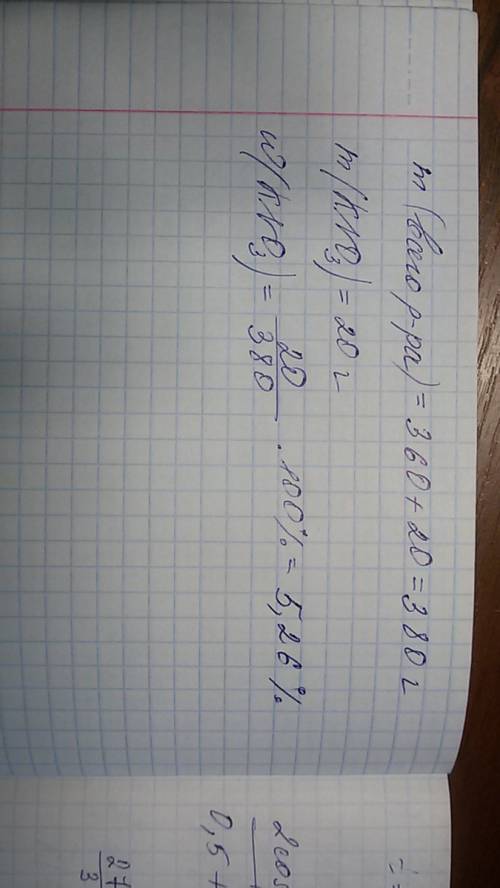 m(всего р-ра) = 360 + 20 = 380 г
m(KNO₃) = 20 г
ω(KNO₃) = 20/380 · 100% = 5,26 %
2cos
0,5 +
2+
3